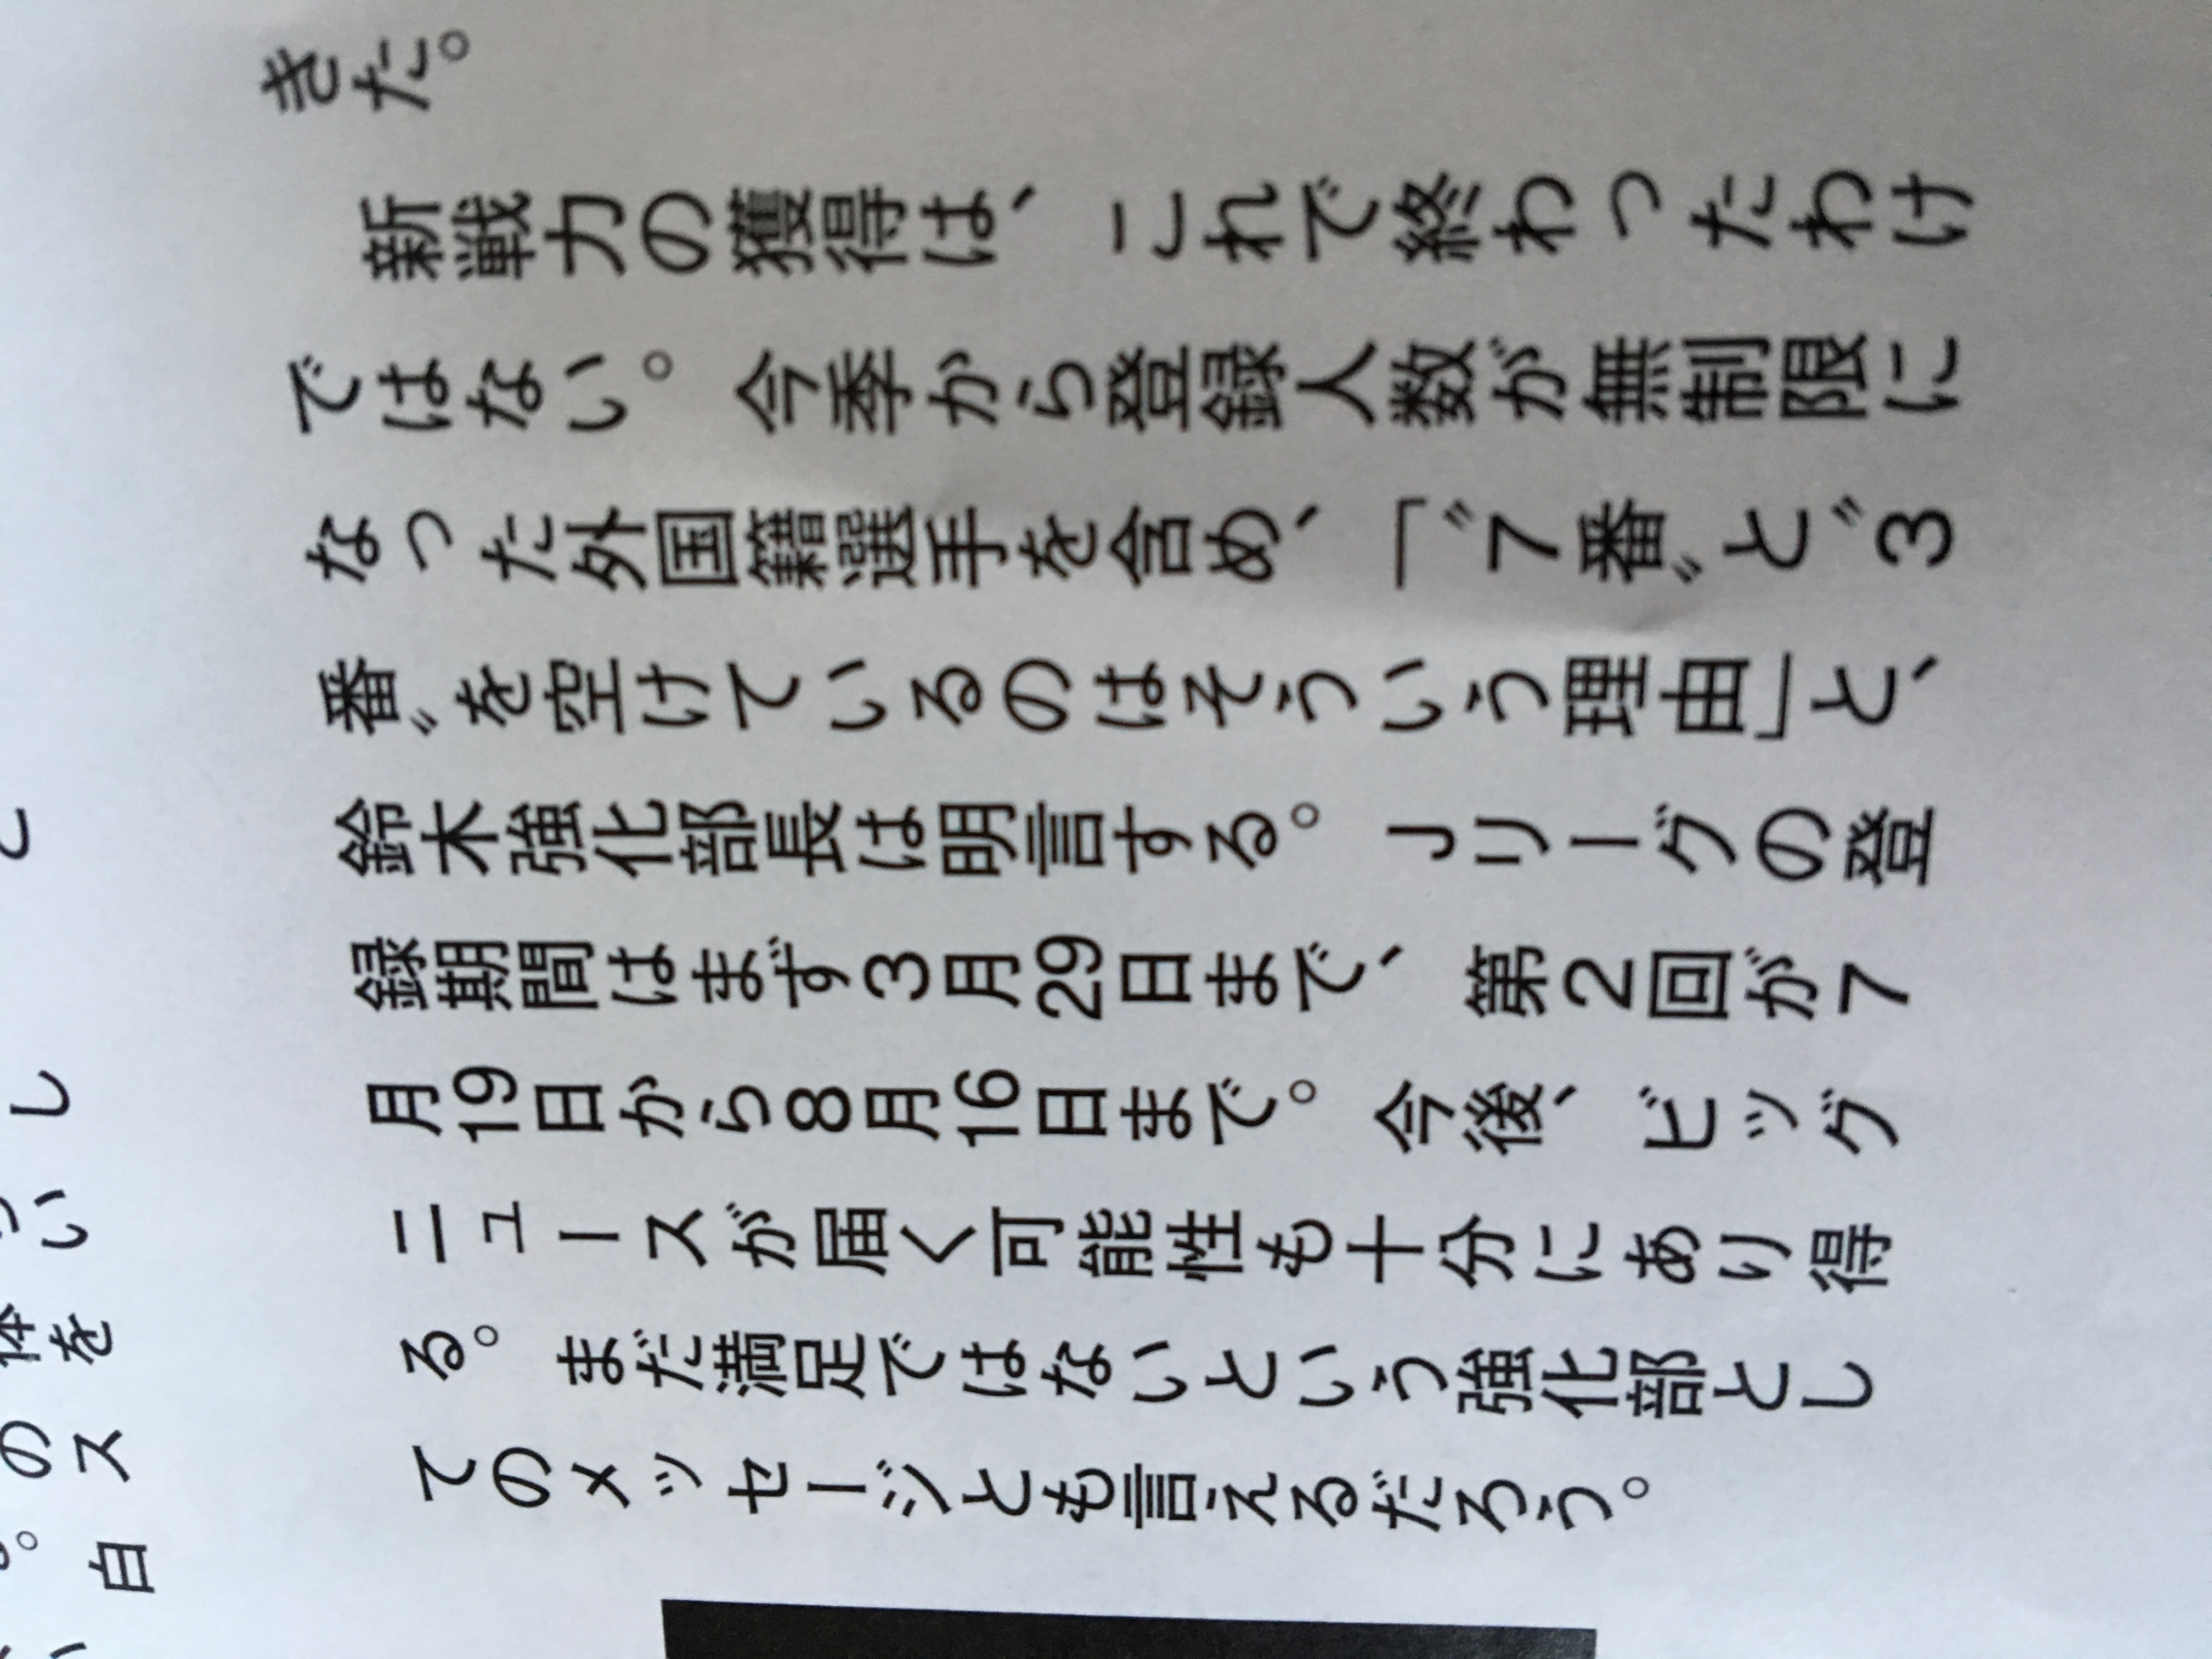 きた。
新戦力の獲得は、これで終わったわけ
ではない。今季から登録人数が無制限に
なった外国籍選手を含め、「〝7番〟と〝3
番〟を空けているのはそういう理由」と、
鈴木強化部長は明言する。Jリーグの登
録期間はまず3月29日まで、第2回が7
月19日から8月16日まで。今後、ビッグ
ニュースが届く可能性も十分にあり得
る。まだ満足ではないという強化部とし
てのメッセージとも言えるだろう。
と
し
いを
の
ス
白